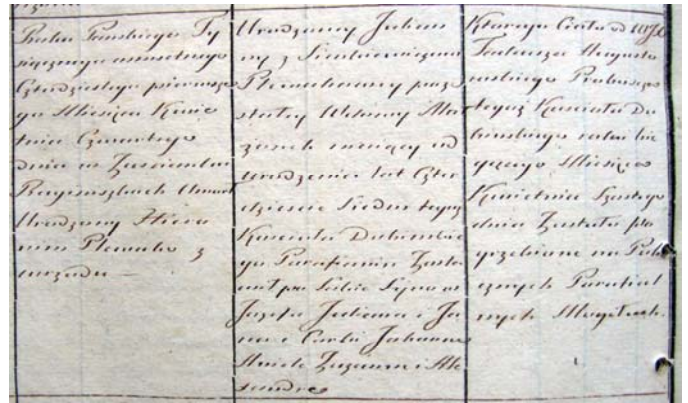 Roku Pańskiego Ty
siącznego osmsetnego
Czterdziestego pierwsze
go Miesiąca Kwie
tnia Czwartego
dnia w Zaścianku
Umarł
Urodzony Hiero
nim Plewako z
Urodzony Julian
ny z Sienkiewiczow
Plewakowny pozo
stały Wdowiec
maiący od
urodzenia lat Czter
dzieście Siedm tegoż
Kościoła Dubinskie
go Parafianin Zosta
wił po Sobie Synow
Jozefa Juliana i Ja
na i Corki Johannę
Anielę Zuzannę i Ale
xandrę
Ktorego Ciało od WJX
Tadeusza Augusto
wskiego Proboszcza
tegoż Kościoła Du
binskiego roku bie
żącego Miesiąca
Kwietnia Szostego
dnia Zostało po
grzebione na Publi
cznych Parafial
nych Mogiłkach